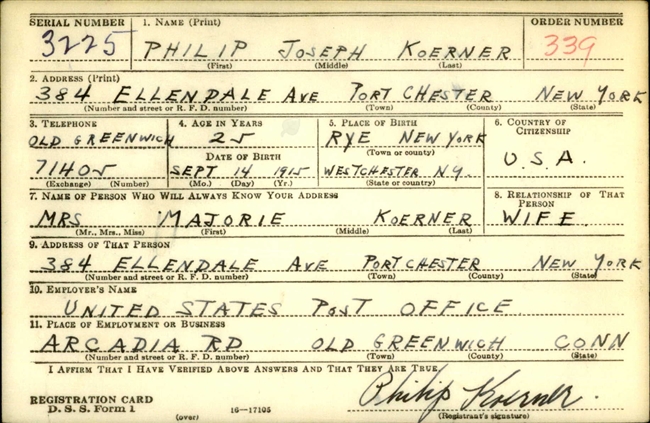 SERIAL NUMBER 1. NAME (Print) ORDER NUMBER
3225 PHILIP JOSEPH KOERNER 339
(First) (Middle) (Last)
2. ADDRESS (Print)
384 ELLENDALE AVE PORT CHESTER NEW YORK
(Number and street or R. F. D. number) (Town) (County) (State)
3. TELEPHONE 4. AGE IN YEARS 5. PLACE OF BIRTH 6. COUNTRY OF CITIZENSHIP
OLD GREENWICH 25 RYE NEW YORK
DATE OF BIRTH (Town or county) U.S.A.
71405 SEPT 14 1915 WESTCHESTER N.Y.
(Exchange) (Number) (Mo.) (Day) (Yr.) (State or country)
7. NAME OF PERSON WHO WILL ALWAYS KNOW YOUR ADDRESS 8. RELATIONSHIP OF THAT PERSON
MRS MAJORIE KOERNER WIFE
(Mr., Mrs., Miss) (First) (Middle) (Last)
9. ADDRESS OF THAT PERSON
384 ELLENDALE AVE PORT CHESTER NEW YORK
(Number and street or R. F. D. number) (Town) (County) (State)
10. EMPLOYER'S NAME
UNITED STATES POST OFFICE
11. PLACE OF EMPLOYMENT OR BUSINESS
ARCADIA RD OLD GREENWICH CONN
(Number and street or R. F. D. number) (Town) (County) (State)
I AFFIRM THAT I HAVE VERIFIED ABOVE ANSWERS AND THAT THEY ARE TRUE.
Philip Koerner
REGISTRATION CARD
D. S. S. Form 1 (over) 16-17105 (Registrant's signature)